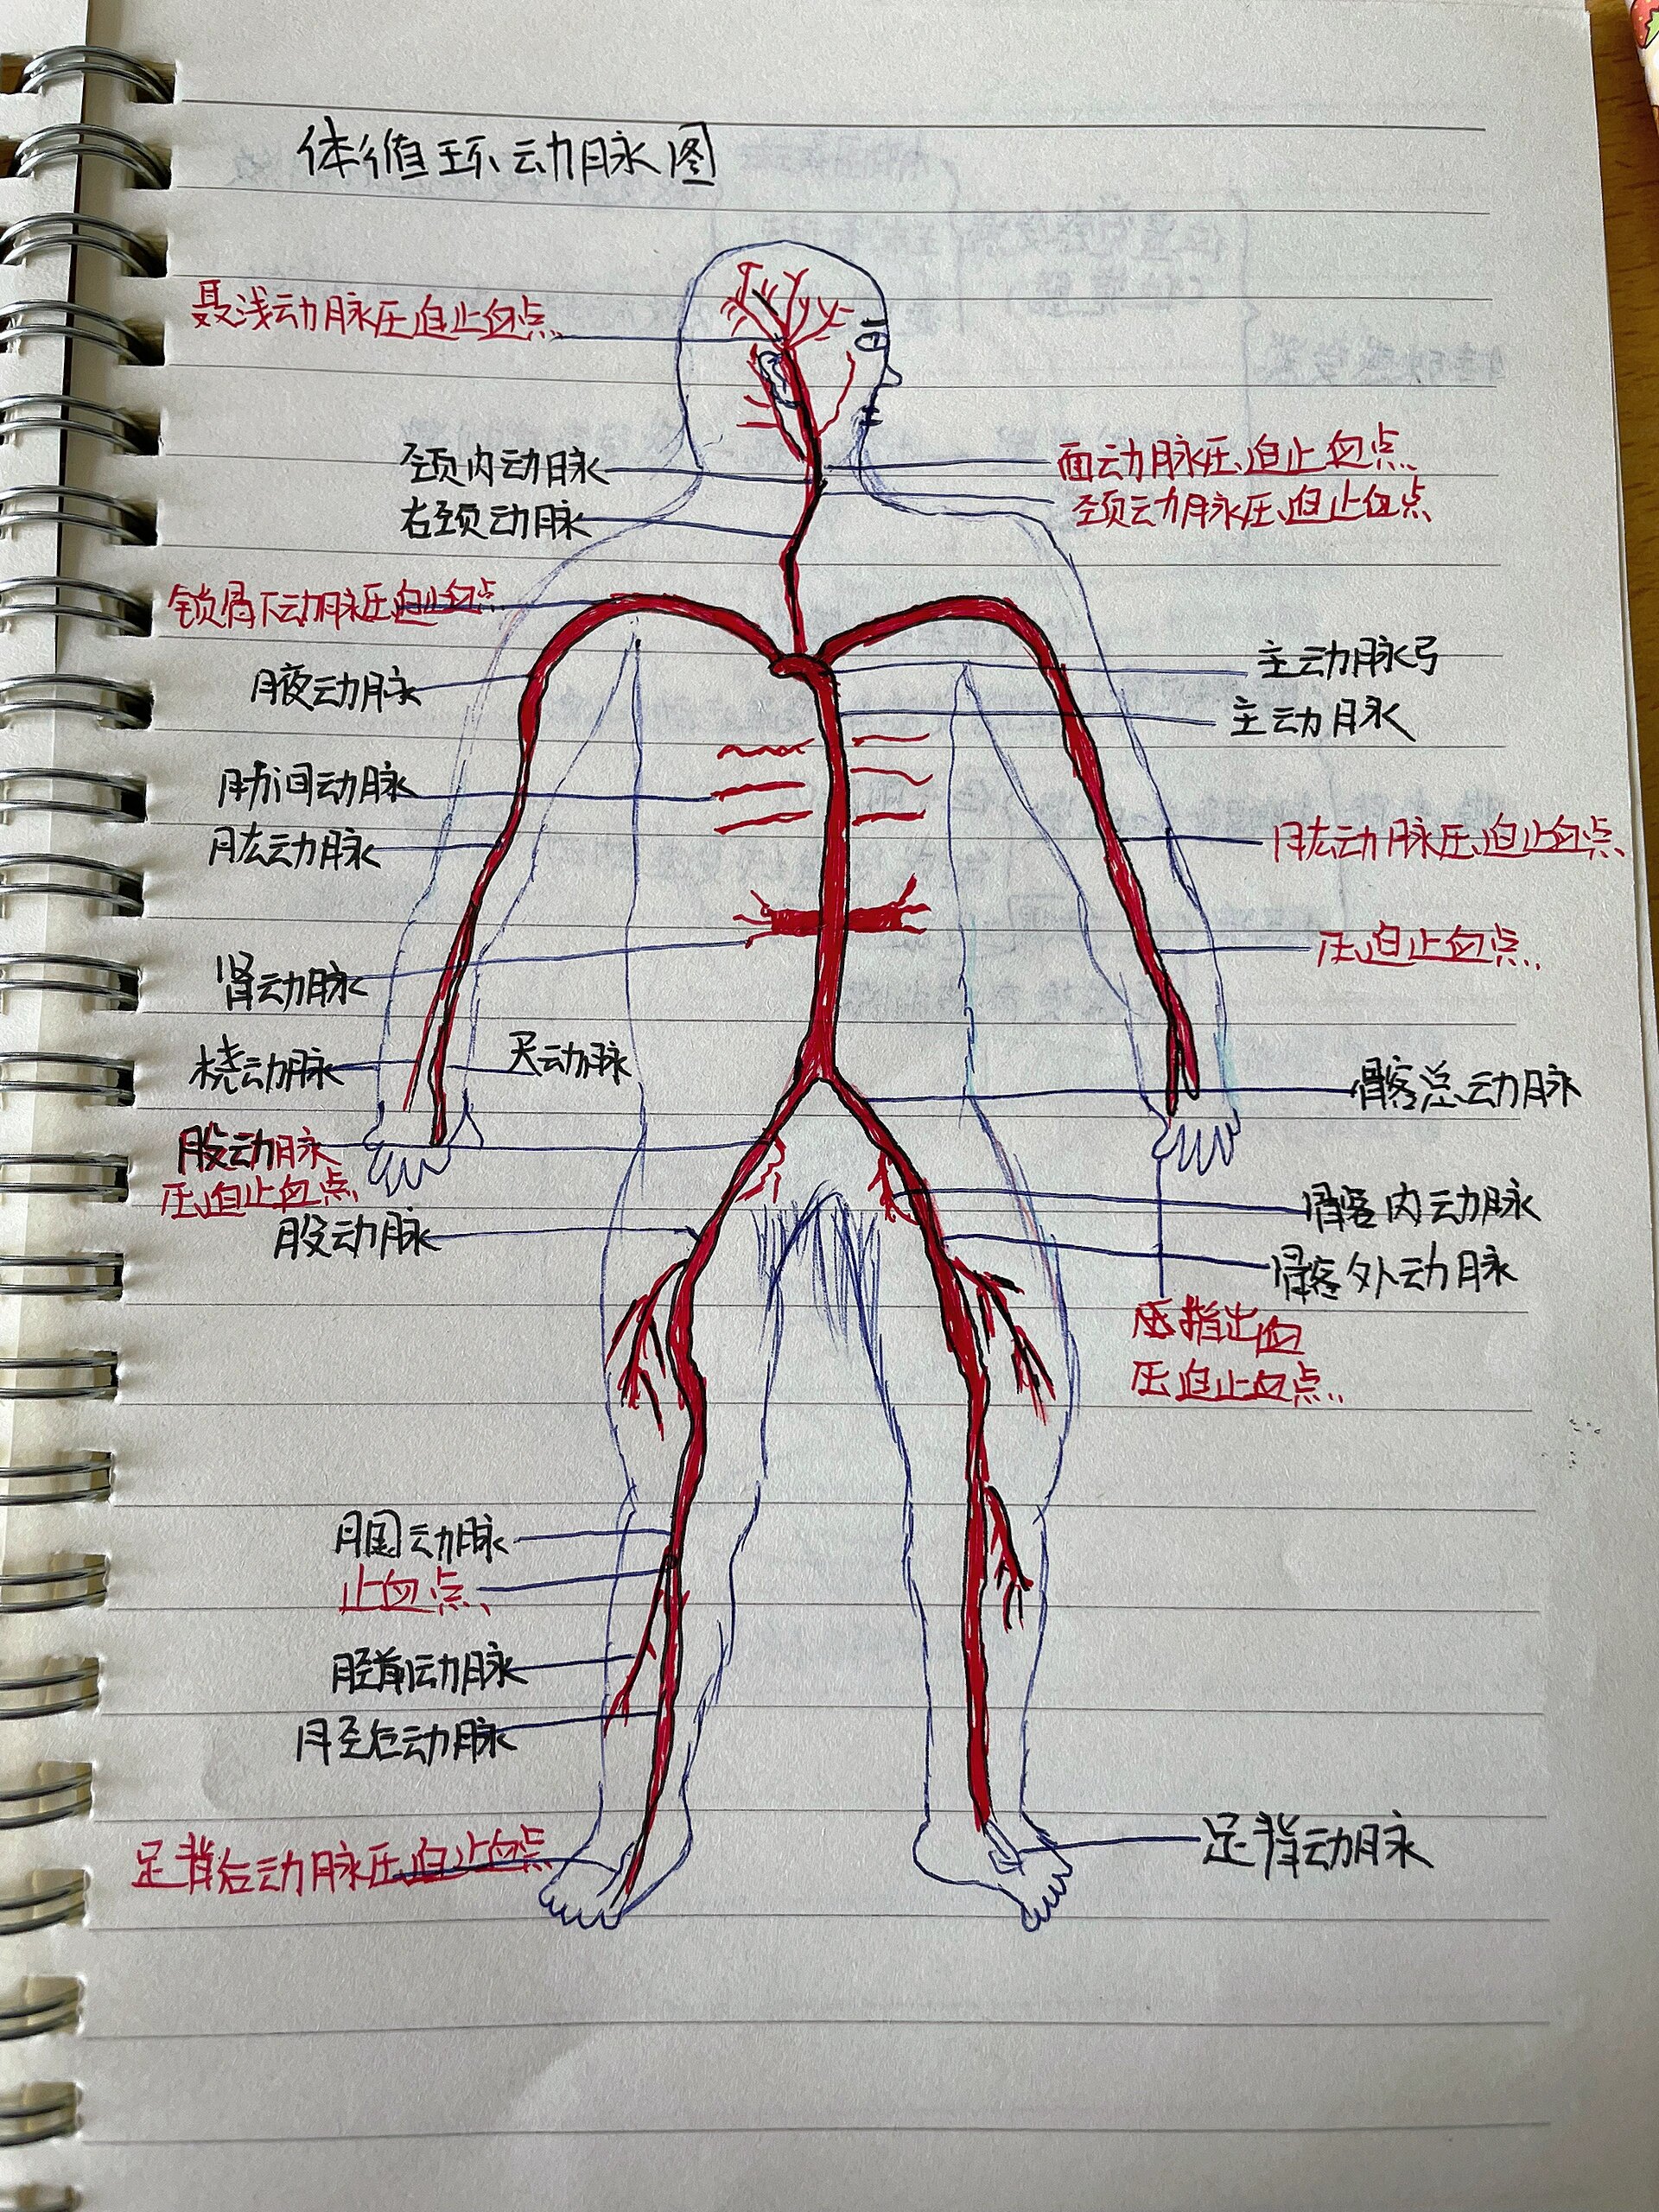 体循环动脉图
聂浅动脉压迫止血点
颈内动脉
面动脉压迫止血点
右颈动脉
颈动脉压迫止血点
锁骨下动脉压迫止血点
腋动脉
主动脉弓
主动脉
肋间动脉
肱动脉
肱动脉压迫止血点
压迫止血点
肾动脉
桡动脉
尺动脉
髂总动脉
股动脉
压迫止血点
股动脉
髂内动脉
髂外动脉
指出血
压迫止血点
腘动脉
止血点
胫前动脉
胫后动脉
足背后动脉压迫止血点
足背动脉